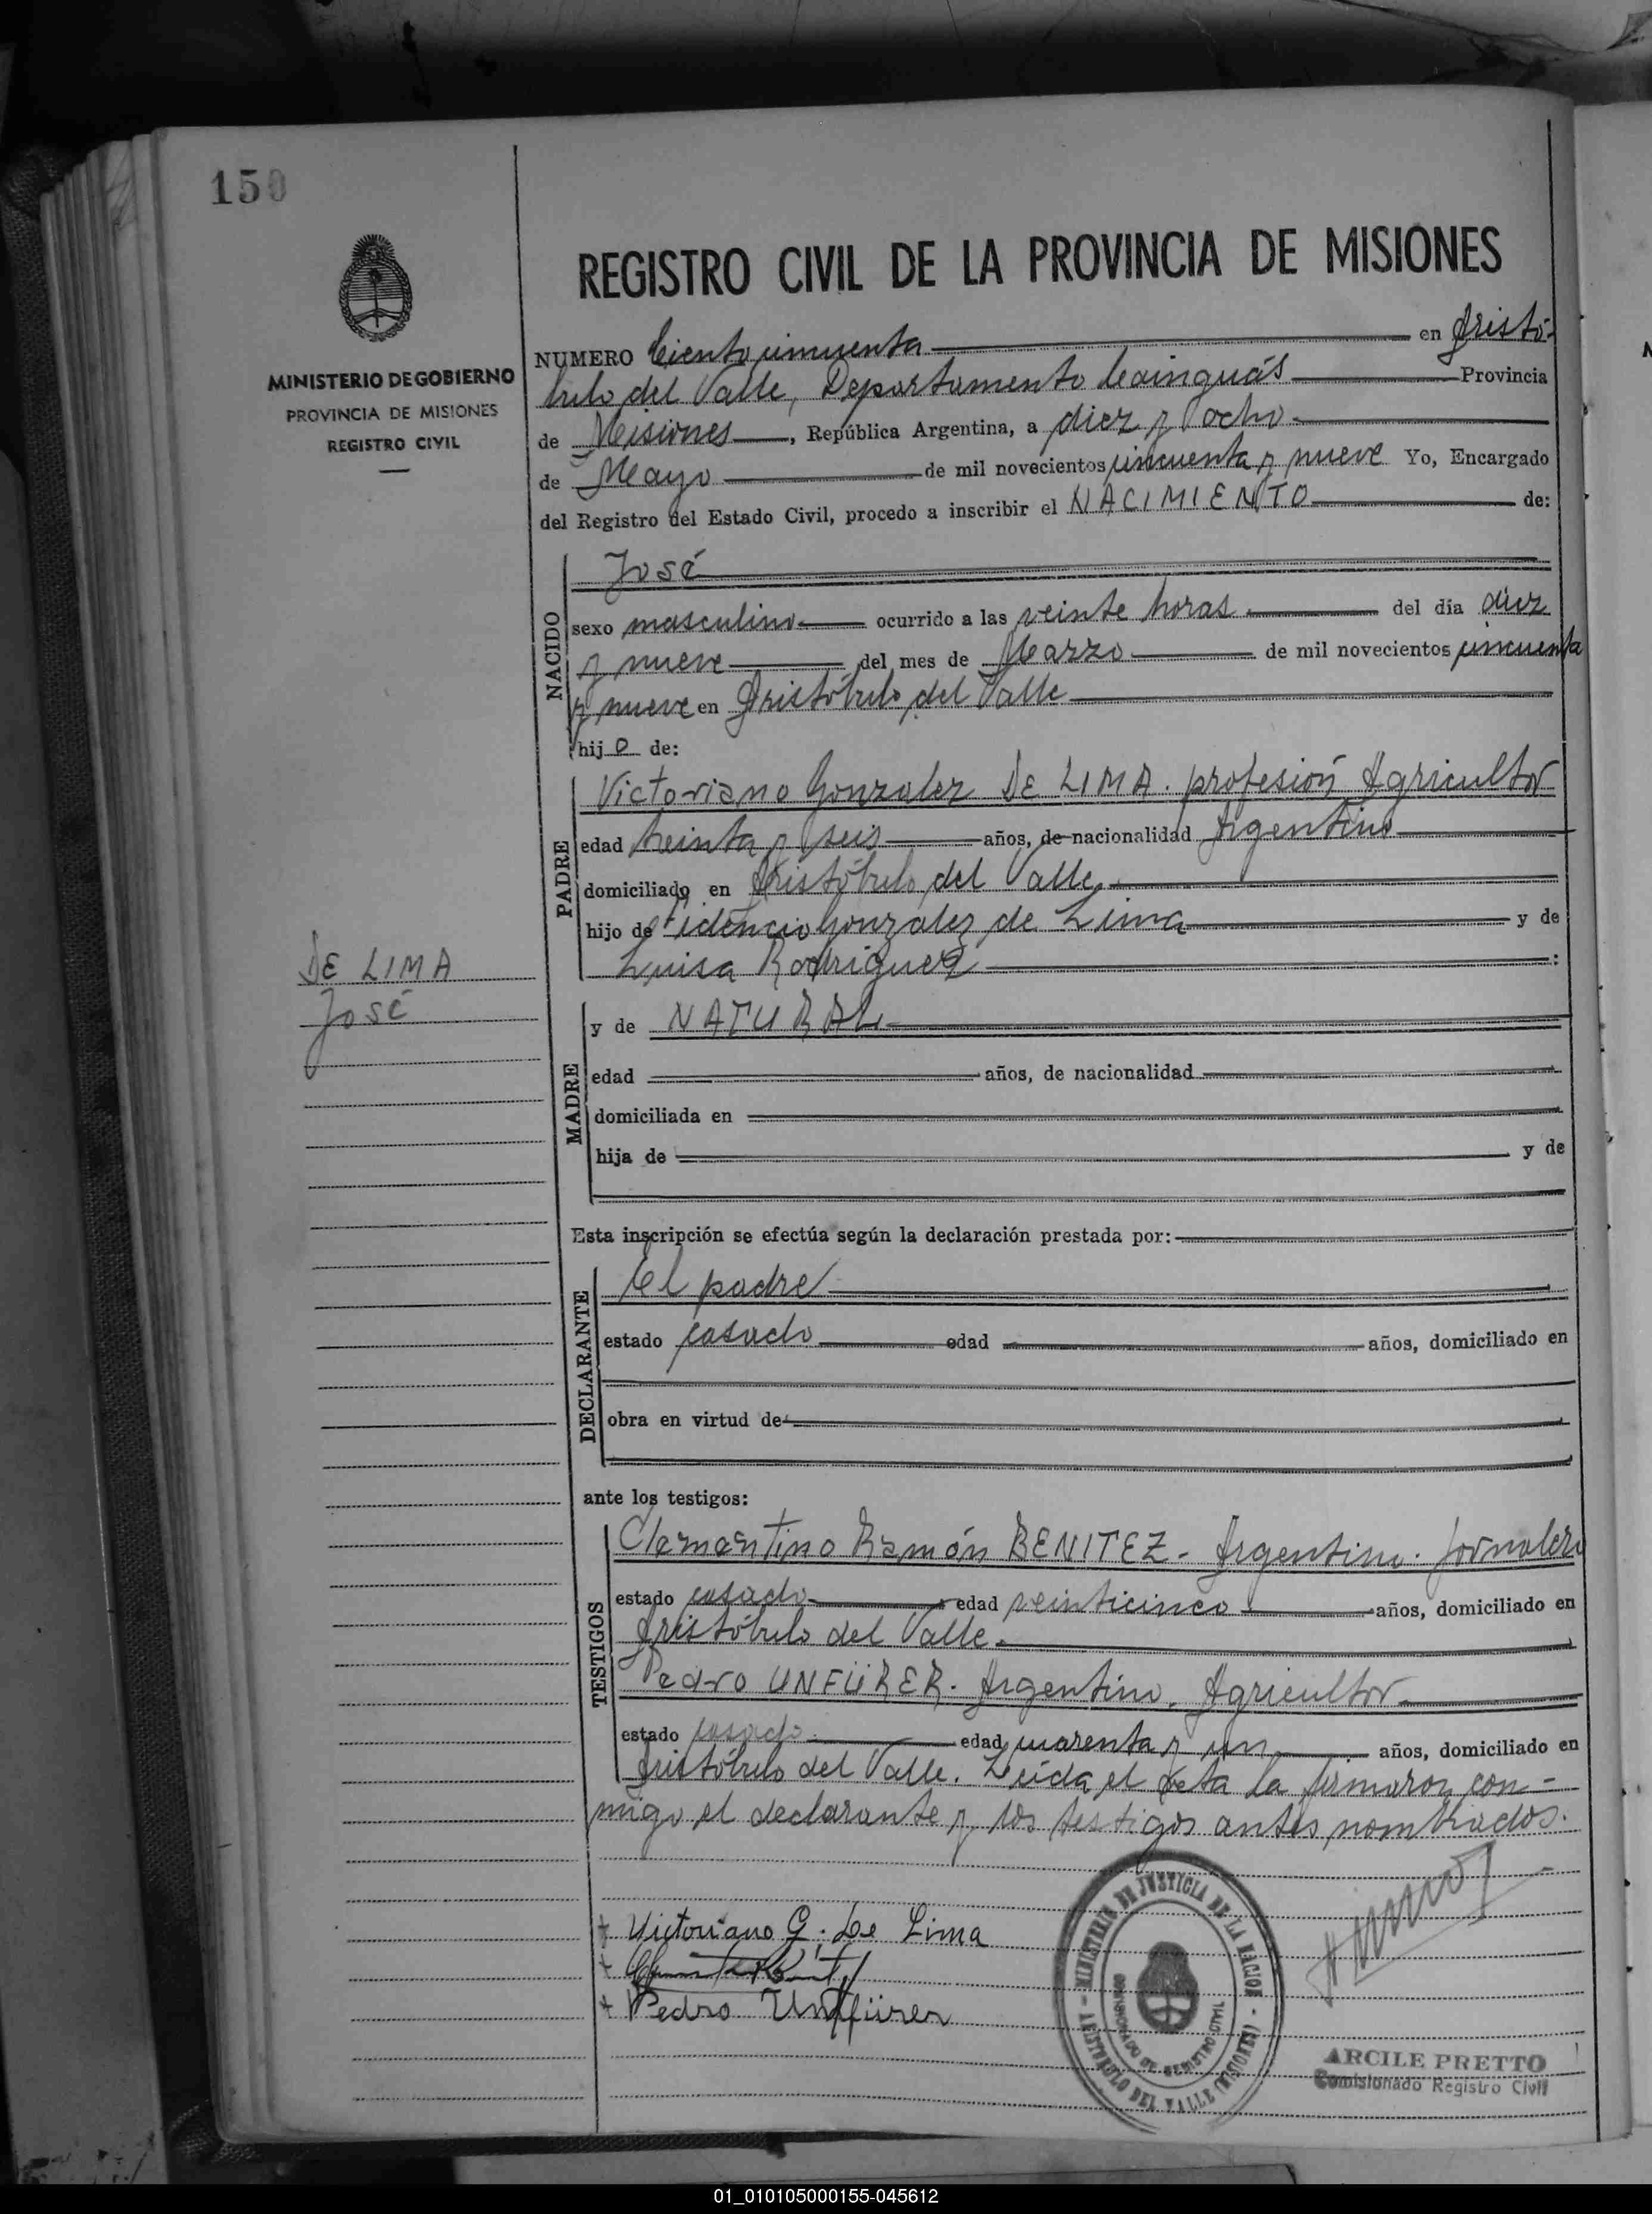 150
MINISTERIO DE GOBIERNO
PROVINCIA DE MISIONES
REGISTRO CIVIL
DE LIMA
José
REGISTRO CIVIL DE LA PROVINCIA DE MISIONES
NUMERO Ciento cincuenta en Aristó-
bulo del Valle, Departamento Cainguás Provincia
de Misiones, República Argentina, a diez y ocho
de Mayo de mil novecientos cincuenta y nueve Yo, Encargado
del Registro del Estado Civil, procedo a inscribir el NACIMIENTO de:
NACIDO
José
sexo masculino ocurrido a las veinte horas del día diez
y nueve del mes de Marzo de mil novecientos cincuenta
y nueve en Aristóbulo del Valle
hijo de:
PADRE
Victoriano Gonzalez DE LIMA. profesión Agricultor
edad treinta y seis años, de nacionalidad Argentino
domiciliado en Aristóbulo del Valle,
hijo de Fidencio Gonzalez de Lima y de
Luisa Rodriguez :
MADRE
y de NATURAL
edad años, de nacionalidad
domiciliada en
hija de y de
Esta inscripción se efectúa según la declaración prestada por:
DECLARANTE
El padre
estado casado edad años, domiciliado en
obra en virtud de
ante los testigos:
TESTIGOS
Clementino Ramón BENITEZ - Argentino. Jornalero
estado casado edad veinticinco años, domiciliado en
Aristóbulo del Valle.
Pedro UNFÜRER. Argentino, Agricultor
estado casado edad cuarenta y un años, domiciliado en
Aristóbulo del Valle. Leída el Acta la firmaron con-
migo el declarante y los testigos antes nombrados.
+ Victoriano G. De Lima
+
+ Pedro Unfürer
- MINISTERIO DE JUSTICIA DE LA NACION -
COMISIONADO DE REGISTRO CIVIL
ARISTOBULO DEL VALLE (MISIONES)
ARCILE PRETTO
Comisionado Registro Civil
01_010105000155-045612